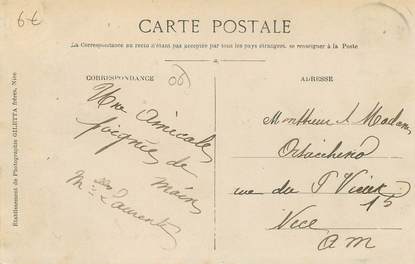 6€
CARTE POSTALE
La Correspondance au recto n'étant pas acceptée par tous les pays étrangers, se renseigner à la Poste
CORRESPONDANCE
06
Une Amicale
poignée de
mains
M Laurent
ADRESSE
Monsieur & Madame
rue du P Vieux
15
Nice
AM
Établissement de Photographie GILETTA frères, Nice